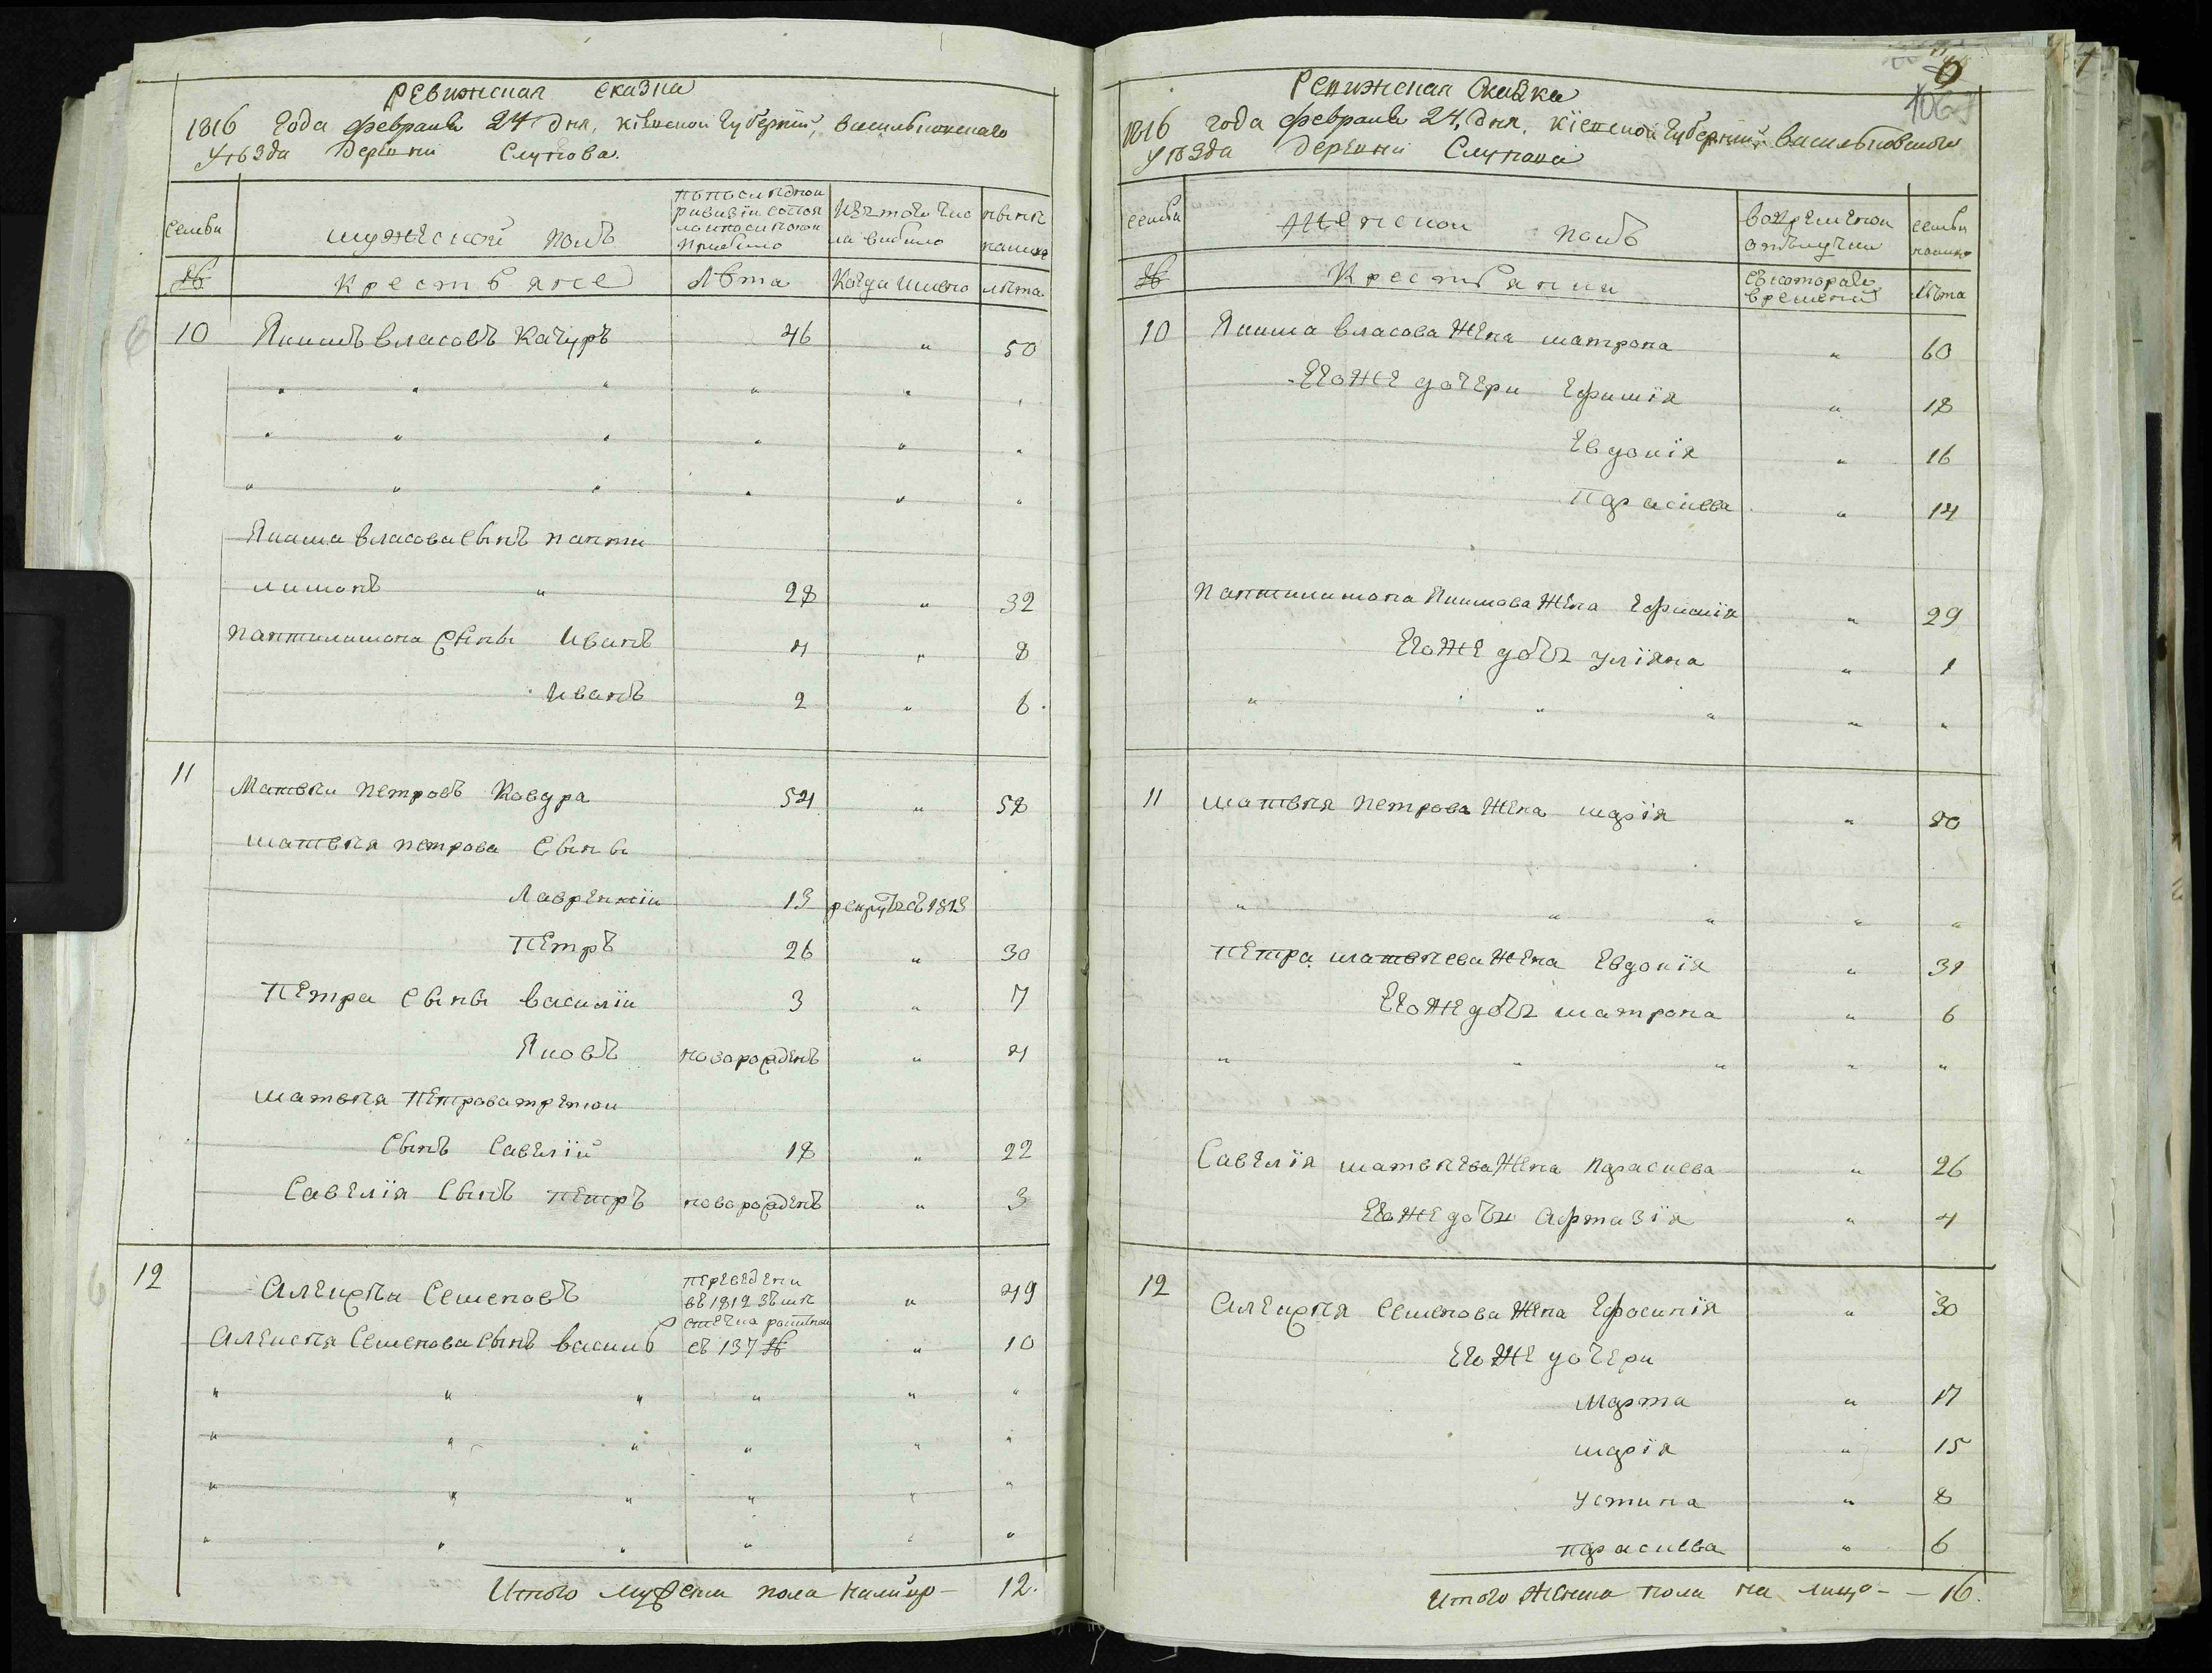 РЕвижская сказка
1816 Года Февраля 24 Дня, Кіевской Губерніи, Васильковскаго
уѢзда Деревни Слупова.
семьи
мужеской полъ
по послѣдной ревизіи состояло и послѣ оной прибыло
Изъ того числа выбыло
нынѣ налицо
№
Крестьяне
Лѣта
Когда имено
лѣта
10 Якимъ Власовъ Качуръ 46 " 50
" " " " " "
" " " " " "
" " " " " "
Якима Власова сынъ Панти
лимонъ " 28 " 32
Пантилимона сыны Иванъ 4 " 8
Иванъ 2 " 6.
11 Матвѣи Петровъ Ковдра 54 " 58
Матвѣя Петрова сыны
Лаврентіи 13 рекрутъ въ 1813
Петръ 26 " 30
Петра сыны Василіи 3 " 7
Яковъ новорожденъ " 4
Матвѣя Петрова третои
сынъ Савеліи 18 " 22
Савелія сынъ Петръ новорожденъ " 3
12 Алеѯѣи Семеновъ переведени въ 1812 зъ имѣ " 49
Алексѣя Семенова сынъ Василь съ 137 № " 10
" " " " " "
" " " " " "
" " " " " "
" " " " " "
Итого мужеска пола налицо — 12.
1069
Ревижская Сказка
1816 года Февраля 24, Дня, Кіевской Губерніи, Васильковскаго
уѢзда Деревни Слупова
семьи
Женской полъ
во временой отлучки
семьи налицо
№
Крестьянки
съ котораго времени
лѣта
10 Якима Власова жена Матрона " 60
Его же дочери Ефимія " 18
Евдокія " 16
Параскева " 14
Пантилимона Якимова жена Ефимія " 29
Его же дочь Уліяна " 1
" " " " "
11 Матвѣя Петрова жена Марія " 80
" " " " "
Петра Матвѣева жена Евдокія " 31
Его же дочь Матрона " 6
" " " " "
Савелія Матвѣева жена Параскева " 26
Его же дочь Афтазія " 4
12 Алеѯѣя Семенова жена Ефросинія " 30
Его же дочери
Марта " 17
Марія " 15
Устина " 8
Параскева " 6
Итого женска пола на лицо — 16.